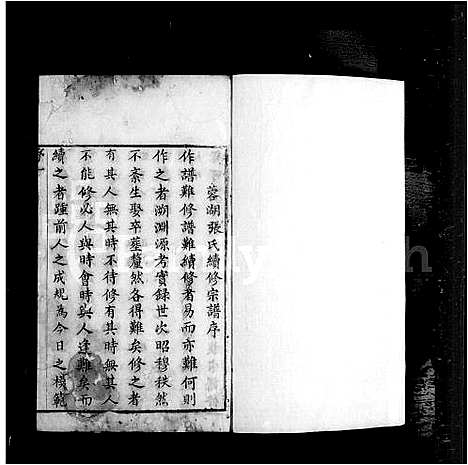 蓉湖張氏續修宗譜序
作譜難修譜難續修者易而亦難何則
作之者溯淵源考實録世次昭穆秩然
不紊生娶卒葬釐然各得難矣修之者
有其人無其時不待修有其時無其人
不能修必人與時會時與人逢難矣而
續之者踵前人之成規為今日之模範